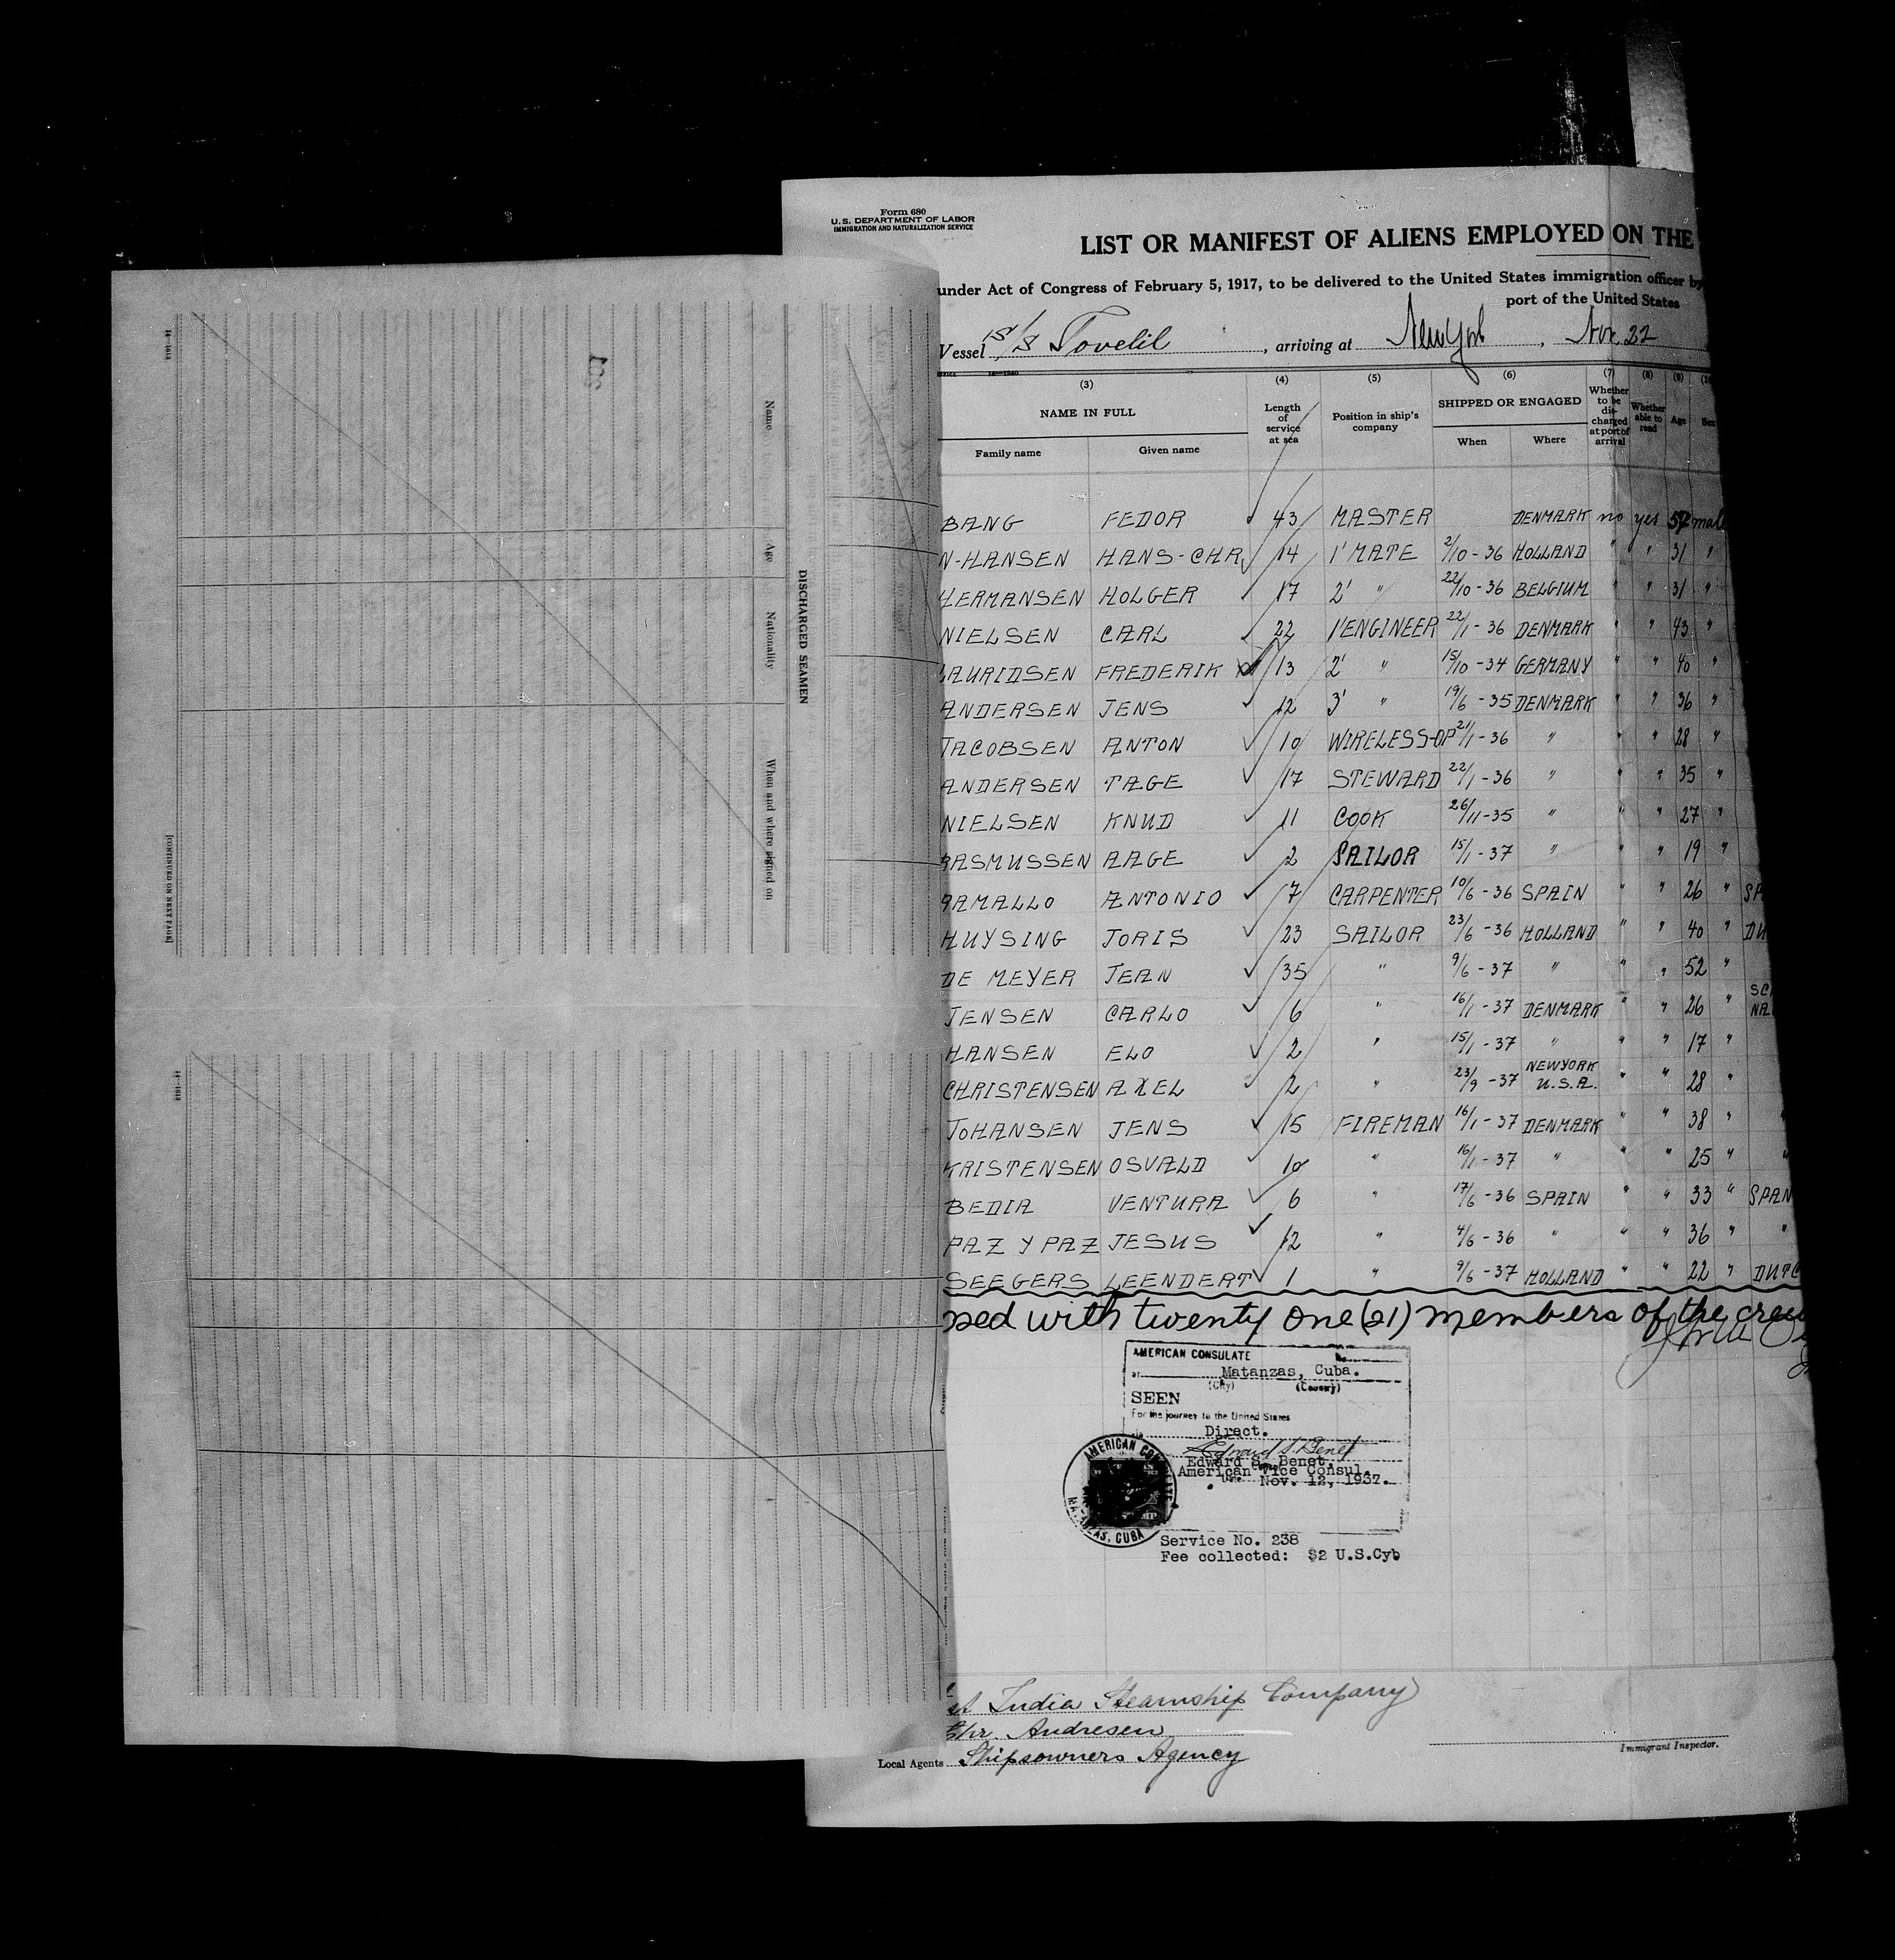 Form 680
U. S. DEPARTMENT OF LABOR
IMMIGRATION AND NATURALIZATION SERVICE
LIST OR MANIFEST OF ALIENS EMPLOYED ON THE
under Act of Congress of February 5, 1917, to be delivered to the United States immigration officer by
port of the United States
Vessel S/S Tovelil, arriving at New York, Nov. 22
(3) (4) (5) (6) (7) (8) (9) (10
NAME IN FULL Length of service at sea Position in ship's company SHIPPED OR ENGAGED Whether to be discharged at port of arrival Whether able to read Age Sex
Family name Given name When Where
BANG FEDOR 43 MASTER DENMARK no yes 57 male
N-HANSEN HANS-CHR 14 1' MATE 2/10 - 36 HOLLAND " " 31 "
HERMANSEN HOLGER 17 2' " 22/10 - 36 BELGIUM " " 31 "
NIELSEN CARL 22 1' ENGINEER 22/1 - 36 DENMARK " " 43 "
LAURIDSEN FREDERIK 13 2' " 15/10 - 34 GERMANY " " 40 "
ANDERSEN JENS 12 3' " 19/6 - 35 DENMARK " " 36 "
JACOBSEN ANTON 10 WIRELESS-OP 21/1 - 36 " " " 28 "
ANDERSEN TAGE 17 STEWARD 22/1 - 36 " " " 35 "
NIELSEN KNUD 11 COOK 26/11 - 35 " " " 27 "
RASMUSSEN AAGE 2 SAILOR 15/1 - 37 " " " 19 "
RAMALLO ANTONIO 7 CARPENTER 10/6 - 36 SPAIN " " 26 " SPA
HUYSING JORIS 23 SAILOR 23/6 - 36 HOLLAND " " 40 " DU
DE MEYER JEAN 35 " 9/6 - 37 " " " 52 "
JENSEN CARLO 6 " 16/1 - 37 DENMARK " " 26 " SC NA
HANSEN ELO 2 " 15/1 - 37 " " " 17 "
CHRISTENSEN AXEL 2 " 23/9 - 37 NEWYORK U.S.A. " " 28 "
JOHANSEN JENS 15 FIREMAN 16/1 - 37 DENMARK " " 38 " "
KRISTENSEN OSVALD 10 " 16/1 - 37 " " " 25 " "
BEDIA VENTURA 6 " 17/6 - 36 SPAIN " " 33 " SPAN
PAZ Y PAZ JESUS 12 " 4/6 - 36 " " " 36 " "
SEEGERS LEENDERT 1 " 9/6 - 37 HOLLAND " " 22 " DUTC
sed with twenty one (21) members of the crew
AMERICAN CONSULATE
at Matanzas, Cuba.
(City) (Country)
SEEN
For the journey to the United States
Direct.
Edward S. Benet
Edward S. Benet,
American Vice Consul.
Date Nov. 12, 1937.
AMERICAN CON
MATANZAS, CUBA
Service No. 238
Fee collected: $2 U.S.Cy
st India Steamship Company
Chr. Andresen
Local Agents Shipsowners Agency
Immigrant Inspector.
DISCHARGED SEAMEN
Name Age Nationality When and where signed on
[CONTINUED ON NEXT PAGE]